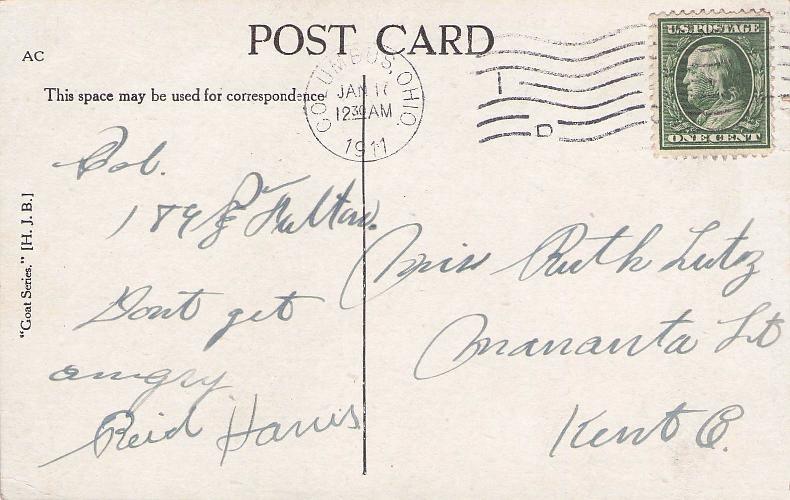 POST CARD
AC
This space may be used for correspondence
COLUMBUS, OHIO.
JAN 17
12 30 AM
1911
D
U.S. POSTAGE
ONE CENT
"Goat Series." [H. J. B.]
Col.
Fulton.
Dont get
angry
Reid Harris
Miss Ruth Lutz
Mananta St
Kent O.